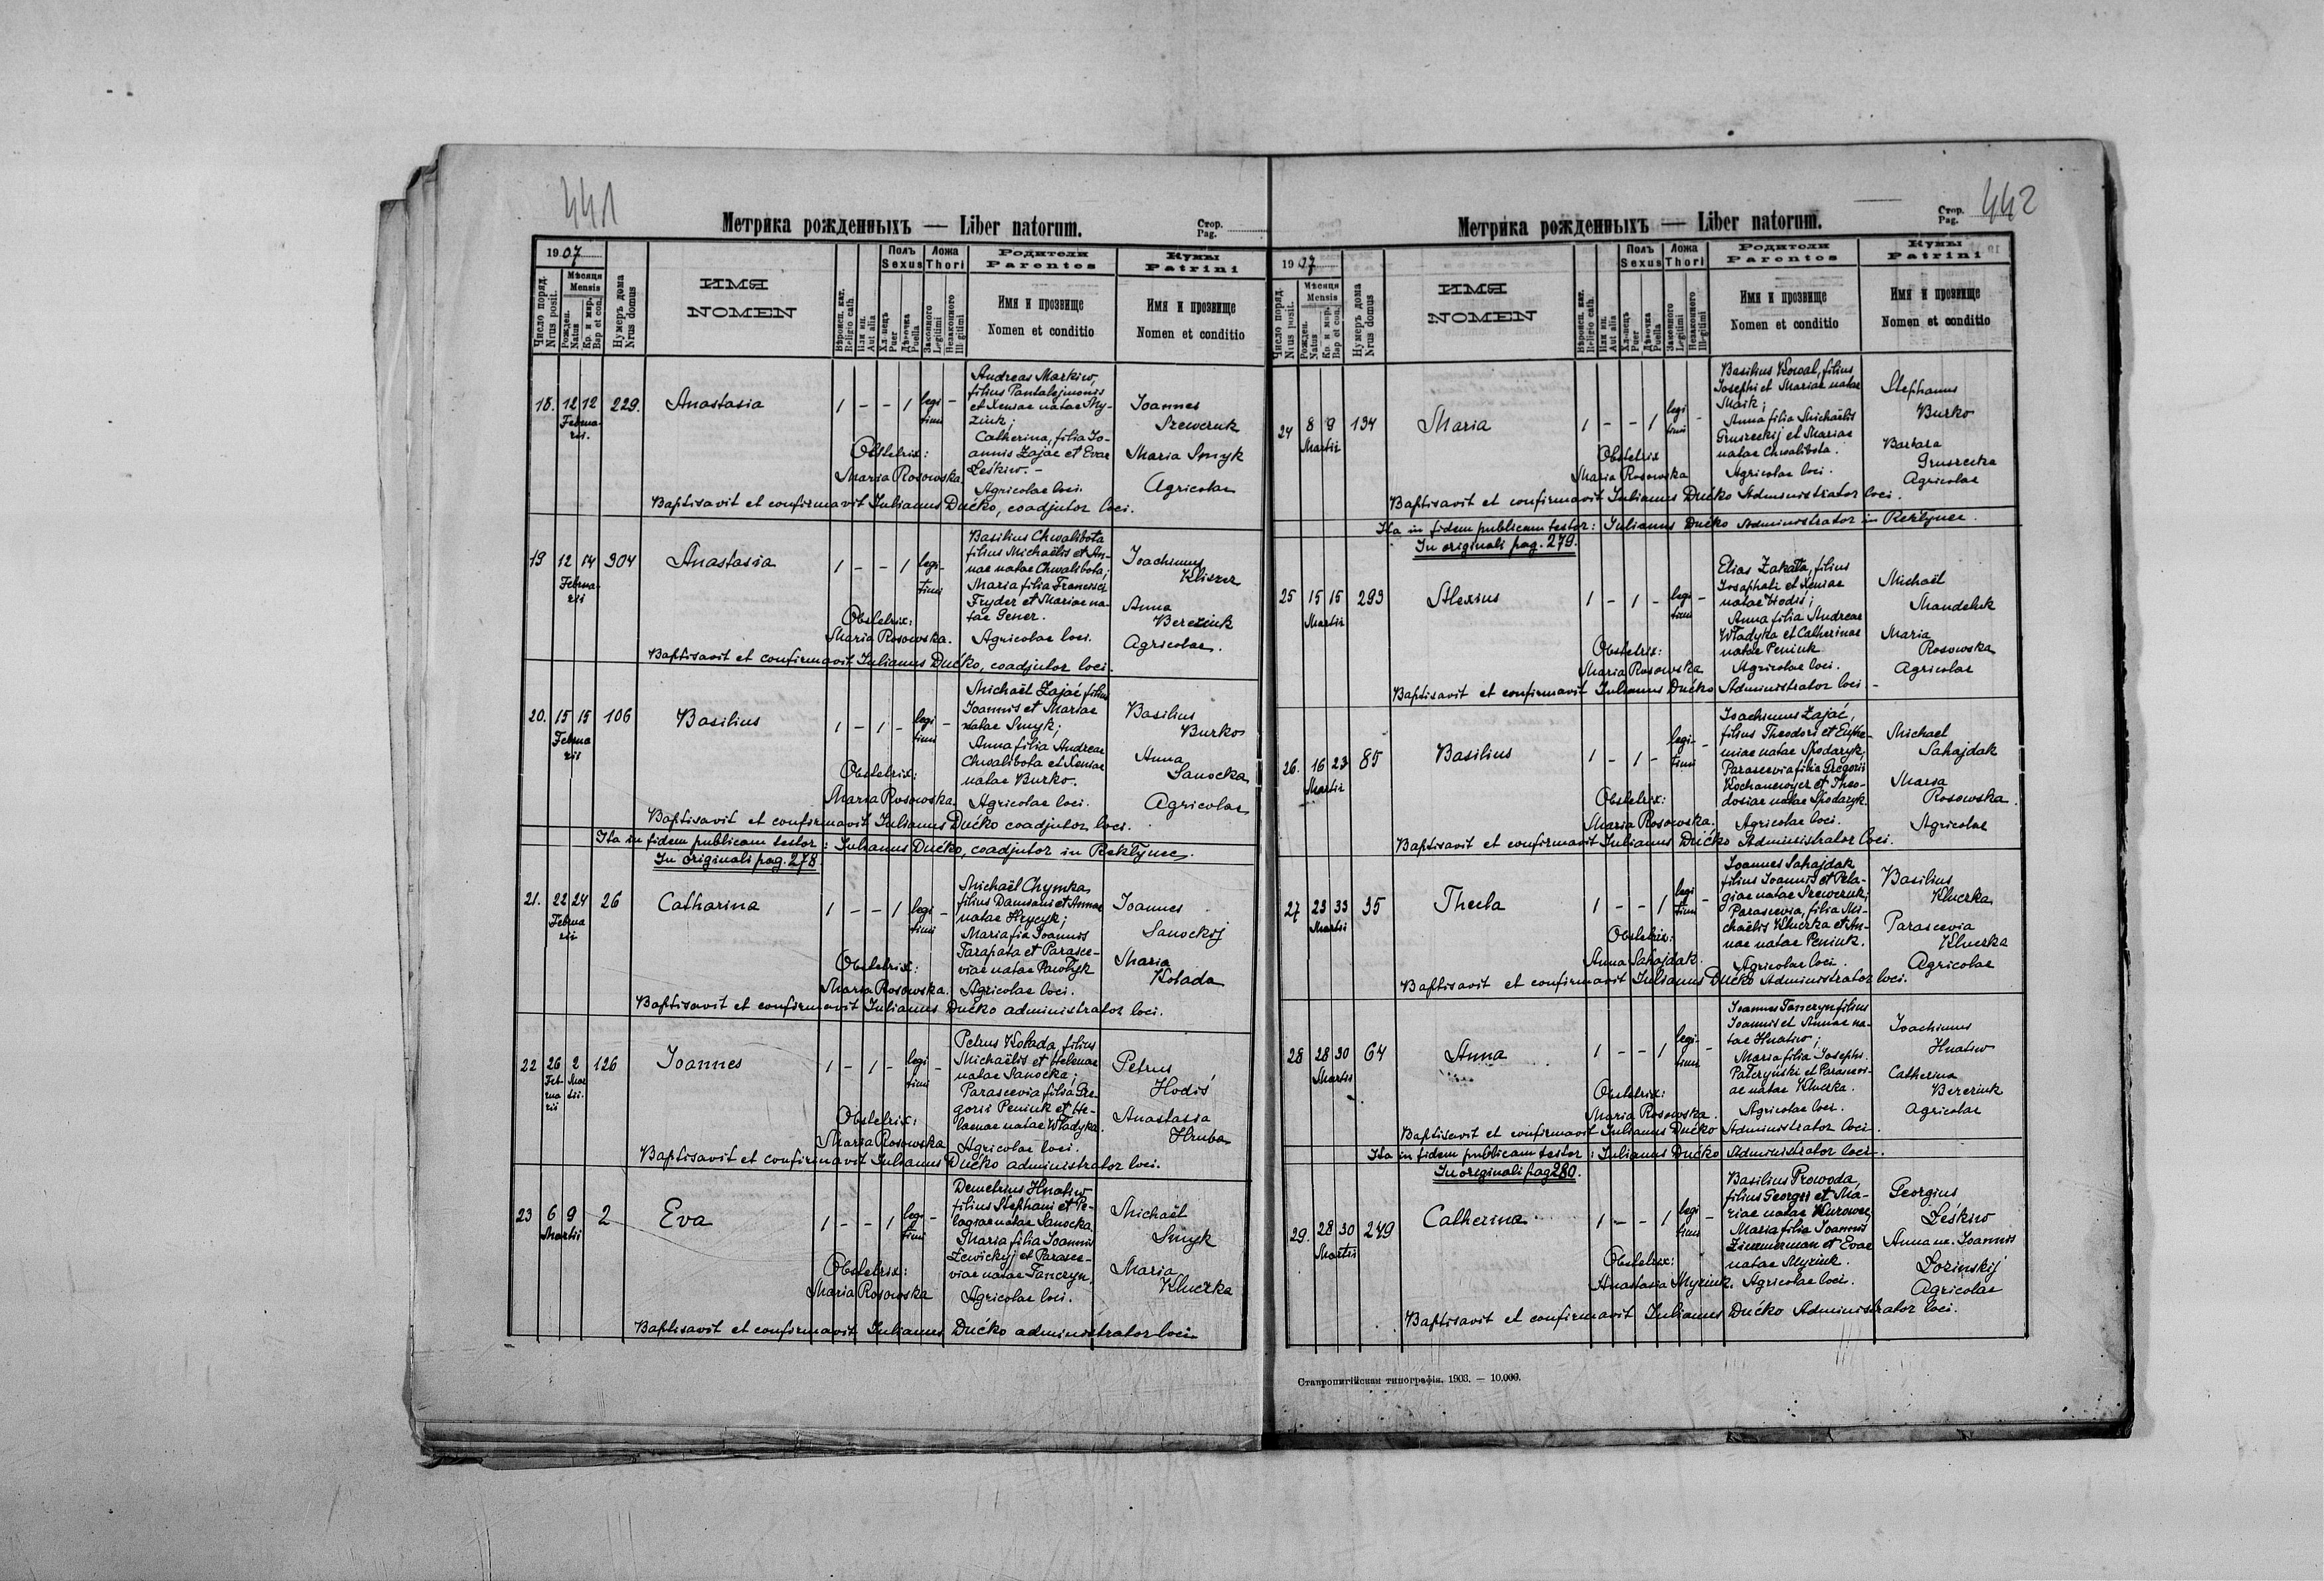 441
Метрика рожденныхъ — Liber natorum.
Стор.
Pag.
1907
Число поряд.
Nrus posit.
Мѣсяця
Mensis
Рожден.
Natus
Кр. и мѵр.
Bap et con.
Нумеръ дома
Nrus domus
ИМЯ
NOMEN
Вѣроисп. кат.
Religio cath.
Или ин.
Aut alia
Полъ
Sexus
Хлопець
Puer
Дѣвочка
Puella
Ложа
Thori
Законного
Legitimi
Незаконного
Illegitimi
Родители
Parentes
Имя и прозвище
Nomen et conditio
Кумы
Patrini
Имя и прозвище
Nomen et conditio
18. 12 12 229. Anastasia 1 - - 1 legi- -
Februa-
rii.
timi
Andreas Markiw,
filius Pantalejmonis
et Xeniae natae My-
ziuk;
Catherina, filia Jo-
annis Zajac et Evae
Leśkiw. -
Agricolae loci.
Joannes
Szewczuk
Maria Smyk
Agricolae
Obstetrix:
Maria Rosowska.
Baptisavit et confirmavit Julianus Dućko, coadjutor loci.
19 12 14 304 Anastasia 1 - - 1 legi- -
Februa-
rii
timi
Basilius Chwalibota
filius Michaëlis et An-
nae natae Chwalibota;
Maria filia Francisci
Fryder et Mariae na-
tae Gener.
Agricolae loci.
Joachimus
Kliszcz
Anna
Bereziuk
Agricolae.
Obstetrix:
Maria Rosowska.
Baptisavit et confirmavit Julianus Dućko, coadjutor loci.
20. 15 15 106 Basilius 1 - 1 - legi- -
Februa
rii
timi
Michaël Zajać filius
Joannis et Mariae
natae Smyk;
Anna filia Andreae
Chwalibota et Xeniae
natae Burko.
Agricolae loci.
Basilius
Burko
Anna
Sanocka
Agricolae
Obstetrix:
Maria Rosowska.
Baptisavit et confirmavit Julianus Dućko coadjutor loci.
Ita in fidem publicam testor: Julianus Dućko, coadjutor in Reklynec.
In originali pag. 278
21. 22 24 26 Catharina 1 - - 1 legi- -
Februa
rii
timi
Michaël Chymka,
filius Damiani et Annae
natae Hrycyk;
Maria fia Joannis
Tarapata et Parasce-
viae natae Pawłyk
Agricolae loci.
Joannes
Sanockij
Maria
Kolada
Obstetrix:
Maria Rosowska.
Baptisavit et confirmavit Julianus Dućko administrator loci.
22 26 2 126 Joannes 1 - 1 - legi- -
Feb-
rua
rii
Mar
tii.
timi
Petrus Kolada, filius
Michaëlis et Helenae
natae Sanocka;
Parascevia filia Gre-
gorii Peniuk et He-
lenae natae Władyka.
Agricolae loci.
Petrus
Hodiś
Anastasia
Hruba
Obstetrix:
Maria Rosowska
Baptisavit et confirmavit Julianus Dućko administrator loci.
23 6 9 2 Eva 1 - - 1 legi- -
Martii
timi
Demetrius Hnatiw
filius Stephani et Pe-
lagiae natae Sanocka
Maria filia Joannis
Zewickyj et Parasce-
viae natae Tanczyn.
Agricolae loci.
Michaël
Smyk
Maria
Kluczka
Obstetrix:
Maria Rosowska
Baptisavit et confirmavit Julianus Dućko administrator loci
442
Метрика рожденныхъ — Liber natorum.
Стор.
Pag.
1907
Число поряд.
Nrus posit.
Мѣсяця
Mensis
Рожден.
Natus
Кр. и мѵр.
Bap et con.
Нумеръ дома
Nrus domus
ИМЯ
NOMEN
Вѣроисп. кат.
Religio cath.
Или ин.
Aut alia
Полъ
Sexus
Хлопець
Puer
Дѣвочка
Puella
Ложа
Thori
Законного
Legitimi
Незаконного
Illegitimi
Родители
Parentes
Имя и прозвище
Nomen et conditio
Кумы
Patrini
Имя и прозвище
Nomen et conditio
24 8 9 134 Maria 1 - - 1 legi -
Martii
timi
Basilius Kowal, filius
Josephi et Mariae natae
Maik;
Anna filia Michaëlis
Gruszeckij et Mariae
natae Chwalibota.
Agricolae loci.
Stephanus
Burko
Barbara
Gruszecka
Agricolae
Obstetrix
Maria Rosowska
Baptisavit et confirmavit Julianus Dućko Administrator loci.
Ita in fidem publicam testor: Julianus Dućko Administrator in Reklynec.
In originali pag. 279.
25 15 15 293 Alexius 1 - 1 - legi- -
Martii
timi
Elias Zakala, filius
Josaphati et Xeniae
natae Hodiś;
Anna filia Andreae
Władyka et Catherinae
natae Peniuk
Agricolae loci.
Michaël
Mandeluk
Maria
Rosowska
Agricolae
Obstetrix:
Maria Rosowska
Baptisavit et confirmavit Julianus Dućko Administrator loci -
26. 16 23 85 Basilius 1 - 1 - legi- -
Martii
timi
Joachimus Zajać,
filius Theodori et Euphe-
miae natae Spodaryk;
Parascevia filia Gregorii
Kochanewycz et Theo-
dosiae natae Spodaryk.
Agricolae loci.
Michael
Sahajdak
Maria
Rosowska.
Agricolae
Obstetrix:
Maria Rosowska.
Baptisavit et confirmavit Julianus Dućko Administrator loci.
27 23 33 35 Thecla 1 - - 1 legi -
Martii
timi
Joannes Sahajdak
filius Joannis et Pela-
giae natae Szewczuk;
Parascevia, filia Mi-
chaëlis Kluczka et An-
nae natae Peniuk.
Agricolae loci.
Basilius
Kluczka
Parascevia
Kluczka
Agricolae
Obstetrix:
Anna Sahajdak.
Baptisavit et confirmavit Julianus Dućko Administrator loci.
28 28 30 64 Anna 1 - - 1 legi- -
Martii
timi
Joannes Tanczyn filius
Joannis et Annae na-
tae Hnatiw;
Maria filia Josephi
Palczyński et Parascevi-
ae natae Kluczka.
Agricolae loci.
Joachimus
Hnatiw
Catherina
Bereziuk
Agricolae
Obstetrix:
Maria Rosowska.
Baptisavit et confirmavit Julianus Dućko Administrator loci.
Ita in fidem publicam testor: Julianus Dućko Administrator loci.
In originali pag 280.
29. 28 30 249 Catherina 1 - - 1 legi -
Martii
timi
Basilius Prowoda,
filius Georgii et Ma-
riae natae Kurowec,
Maria filia Joannis
Zimmerman et Evae
natae Myziuk.
Agricolae loci.
Georgius
Leśkiw
Anna ux. Joannis
Lozinskij
Agricolae
Obstetrix:
Anastasia Myziuk.
Baptisavit et confirmavit Julianus Dućko Administrator loci.
Ставропигійская типографія. 1903. — 10.000.